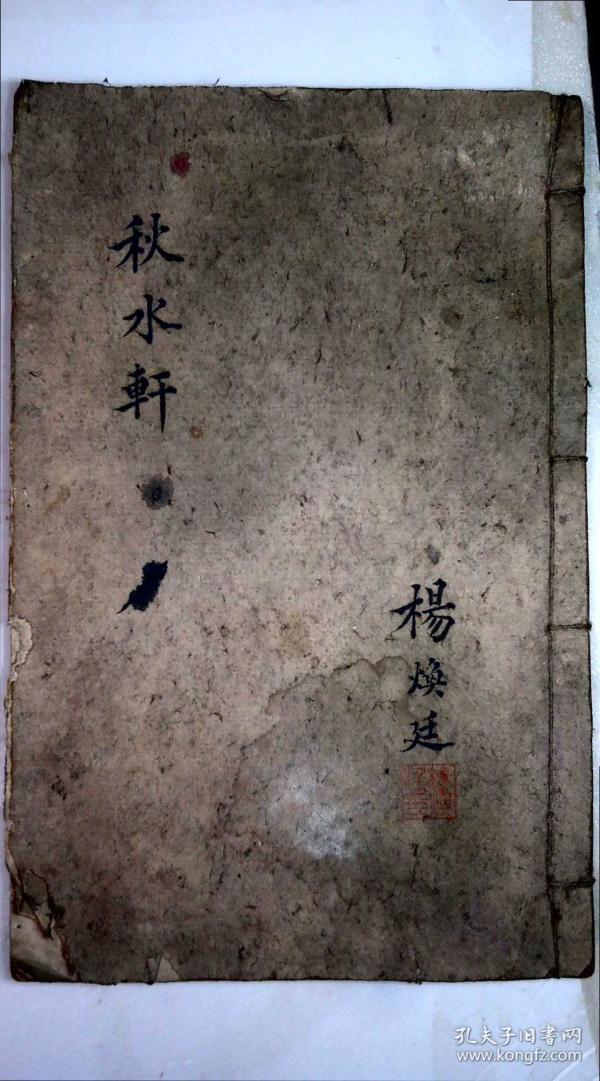 秋水軒
楊煥廷
孔夫子旧書网
www.kongfz.com